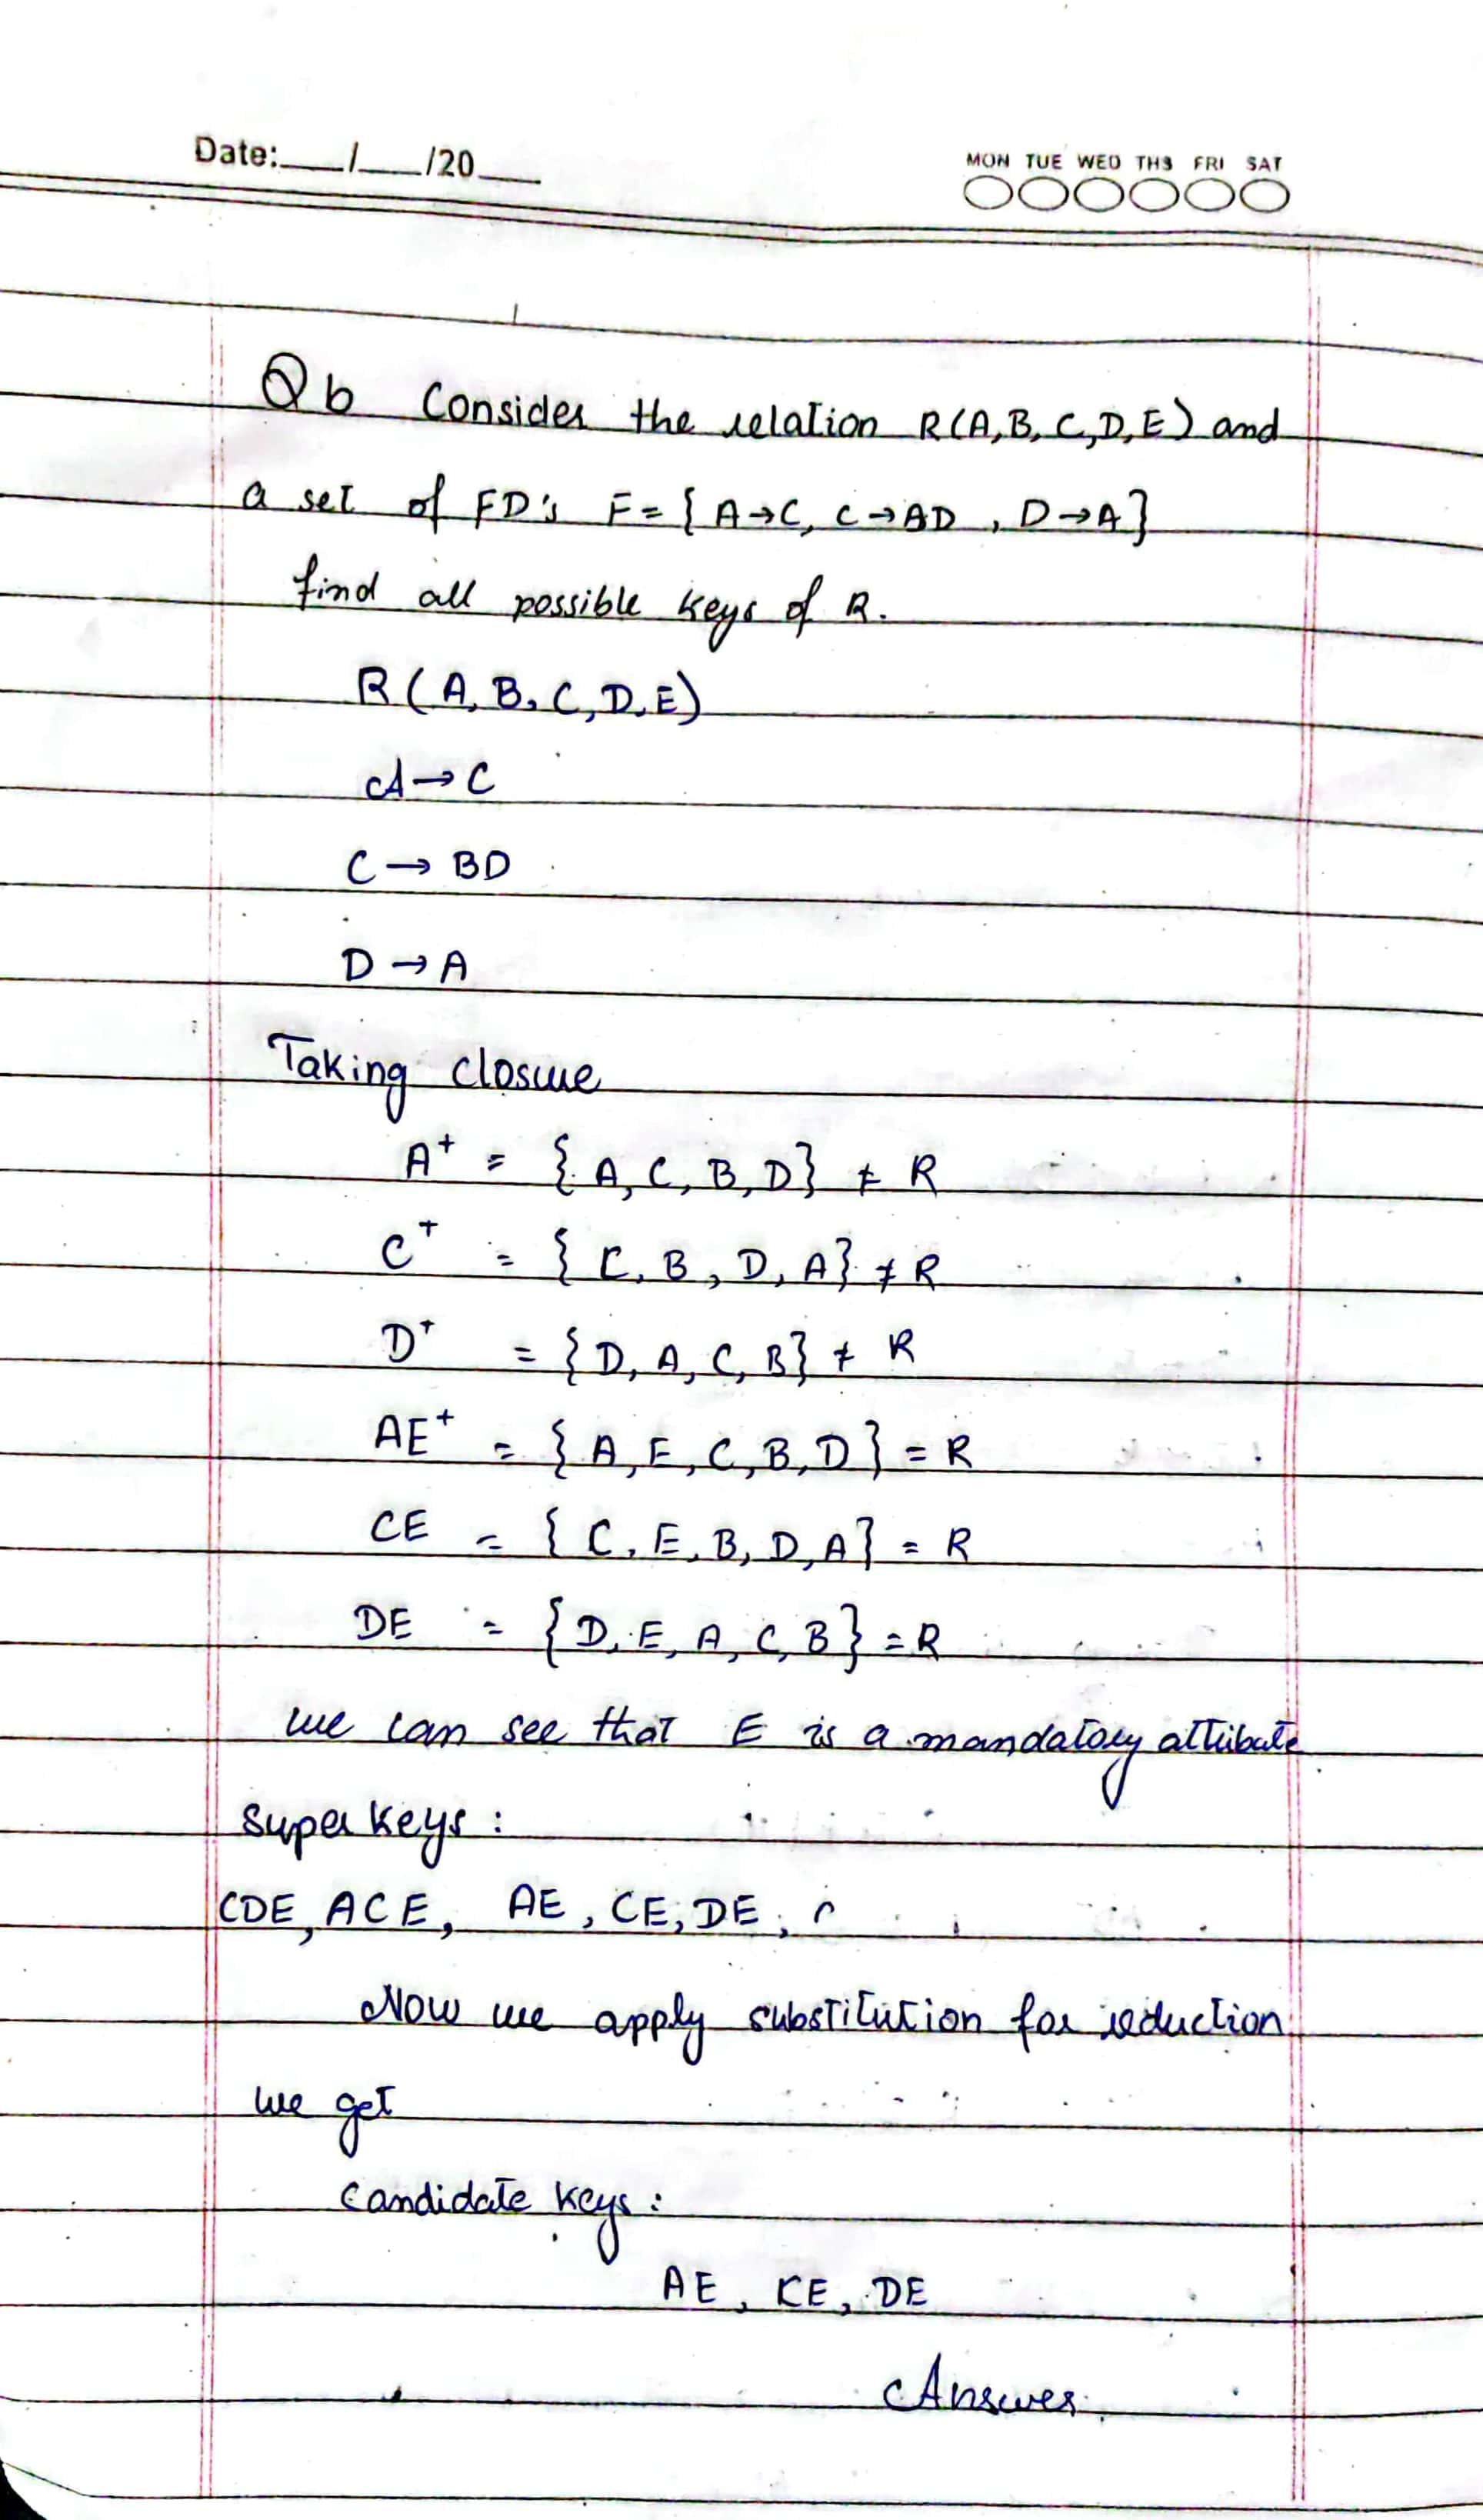 Date:___/___/20___
MON TUE WED THS FRI SAT
Q b Consider the relation R(A,B,C,D,E) and
a set of FD's F = { A→C, C→AD , D→A}
find all possible keys of R.
R ( A, B, C, D, E)
A→C
C → BD
D → A
Taking closure
A⁺ = { A, C, B, D} ≠ R
C⁺ = { C, B , D, A} ≠ R
D⁺ = { D, A, C, B} ≠ R
AE⁺ = { A, E, C, B, D } = R
CE = { C, E, B, D, A} = R
DE = { D, E, A, C, B} = R
we can see that E is a mandatory attribute
Super keys :
CDE, ACE, AE, CE, DE,
Now we apply substitution for reduction
we get
Candidate keys :
AE, CE, DE
Answer.